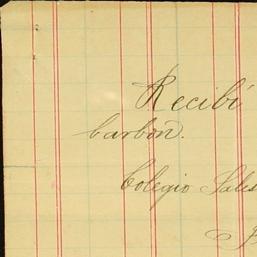 Recibí
carbón.
Colegio Sales